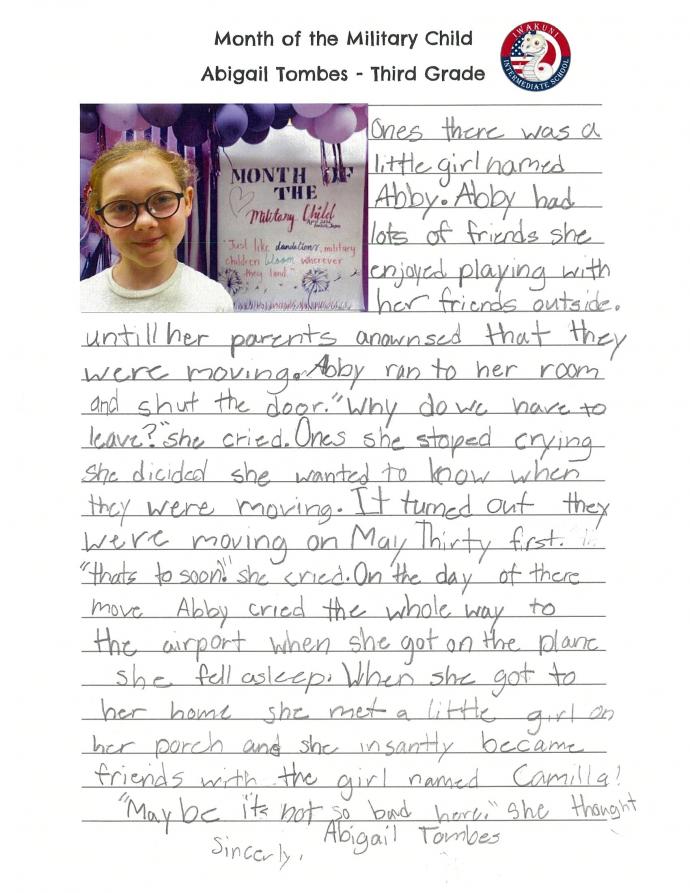 Month of the Military Child
Abigail Tombes - Third Grade
IWAKUNI
INTERMEDIATE SCHOOL
MONTH OF
THE
Military Child
"Just like dandelions, military
children bloom wherever
they land."
Ones there was a
little girl named
Abby. Abby had
lots of friends she
enjoyed playing with
her friends outside.
untill her parents anownsed that they
were moving. Abby ran to her room
and shut the door. "Why do we have to
leave?" she cried. Ones she stoped crying
she dicided she wanted to know when
they were moving. It turned out they
were moving on May Thirty first.
"thats to soon!" she cried. On the day of there
move Abby cried the whole way to
the airport when she got on the plane
she fell asleep. When she got to
her home she met a little girl on
her porch and she insantly became
friends with the girl named Camilla!
"May be it's not so bad here." she thought
Sincerly, Abigail Tombes